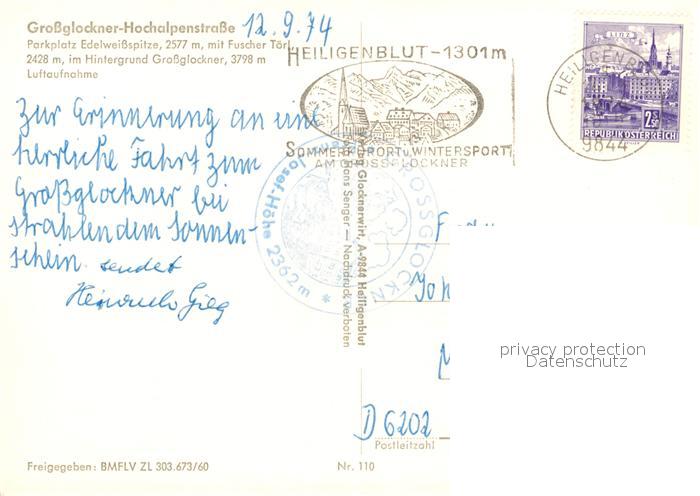 Großglockner-Hochalpenstraße
Parkplatz Edelweißspitze, 2577 m, mit Fuscher Törl
2428 m, im Hintergrund Großglockner, 3798 m
Luftaufnahme
12.9.74
HEILIGENBLUT-1301m
SOMMERFRORT u WINTERSPORT
AM GROSSGLOCKNER
HEILIGENB
9844
LINZ
2.50 S
REPUBLIK ÖSTERREICH
Zur Erinnerung an eine
herrliche Fahrt zum
Großglockner bei
strahlendem Sonnen-
schein sendet
GROSSGLOCKN
Josef-Höhe 2362m *
Glocknerwirt, A-9844 Heiligenblut
Hans Senger — Nachdruck verboten
F
Joh
M
D 6202
Postleitzahl
privacy protection
Datenschutz
Freigegeben: BMFLV ZL 303.673/60
Nr. 110